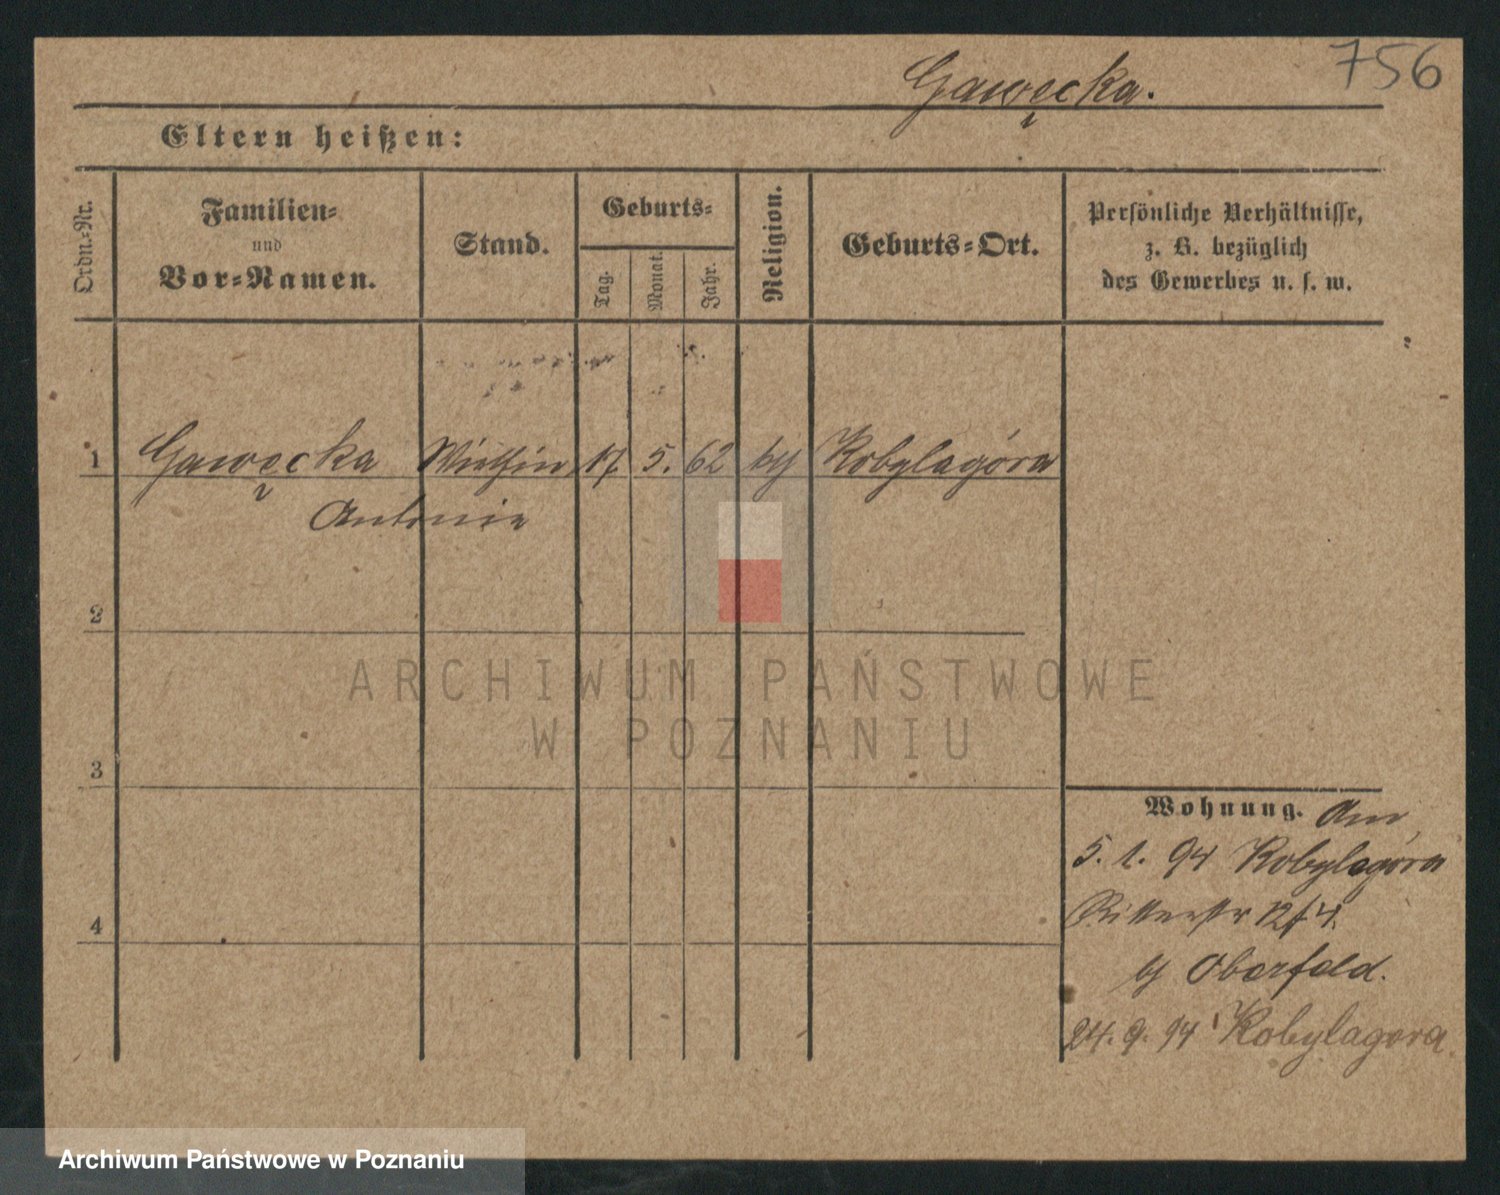 756
Gawęcka.
Eltern heißen:
Ordn.-Nr.
Familien-
und
Vor-Namen.
Stand.
Geburts-
Tag.
Monat.
Jahr.
Religion.
Geburts-Ort.
Persönliche Verhältnisse,
z. B. bezüglich
des Gewerbes u. s. w.
1 Gawęcka Wirthin 17. 5. 62 Kobylagóra
Antonie
2
ARCHIWUM PAŃSTWOWE
W POZNANIU
3
Wohnung. Am
5. 1. 94 Kobylagóra
Ritterstr 12/4.
Oberfeld.
4
24. 9. 94 Kobylagora
Archiwum Państwowe w Poznaniu